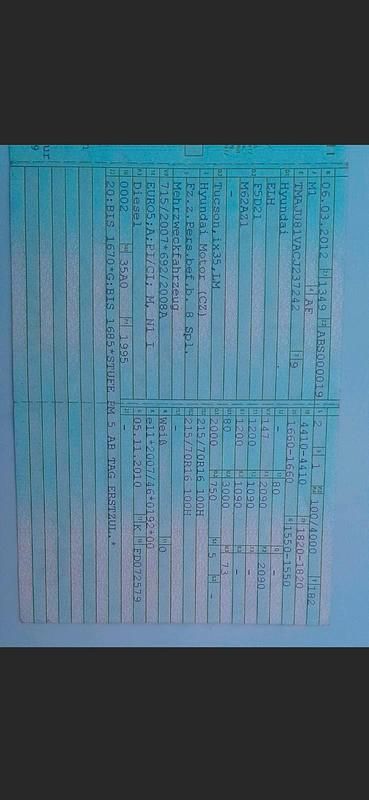 06.03.2012 1349 ABS000019
M1 AF
TMAJU81VACJ237242 9
Hyundai
ELH
F5D21
M62AZ1
-
Tucson,ix35,LM
Hyundai Motor (CZ)
Fz.z.Pers.bef.b. 8 Spl.
Mehrzweckfahrzeug
715/2007*692/2008A
EURO5;A;PI/CI; M, N1 I
Diesel
0002 35A0 1995
2 1 100/4000 182
4410-4410 1820-1820
1660-1660 1550-1550
- 80 -
147 2090 2090
1200 1090 -
1200 1090 -
80 3000 73
2000 750 5 -
215/70R16 100H
215/70R16 100H
-
Weiß 0
e11*2007/46*0192*00
05.11.2010 K FD072579
-
20:BIS 1670*G:BIS 1685*STUFE EM 5 AB TAG ERSTZUL.*